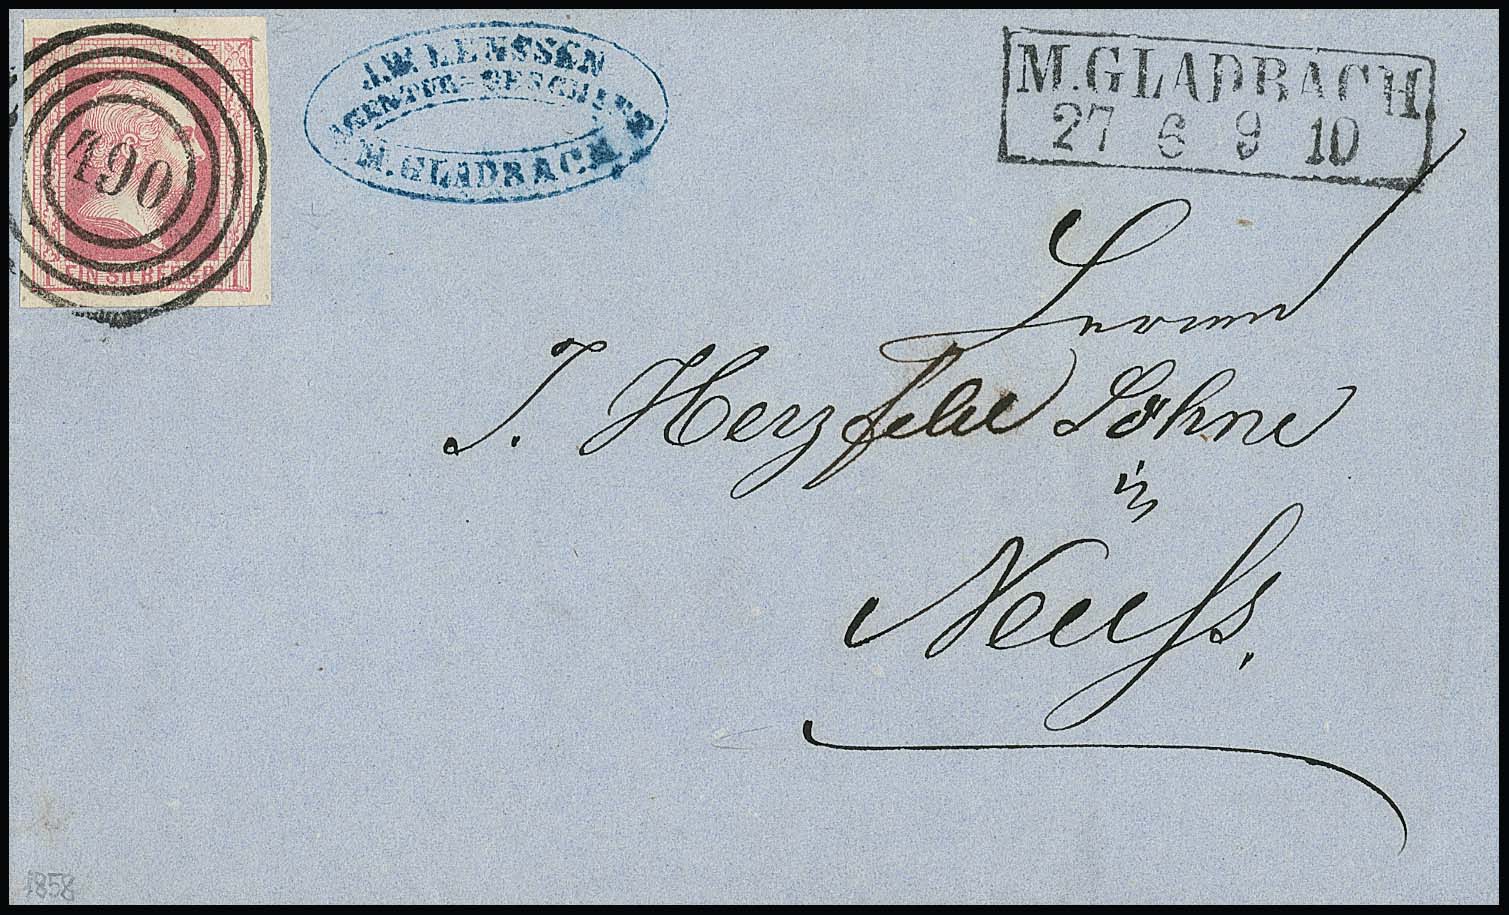 490
1 EIN SILBERGR. 1
J.W. LENSSEN
AGENTUR-GESCHÄFT
M. GLADBACH
M. GLADBACH
27 6 9 10
Herren
J. Herzfeld Söhne
in
Neuss.
1858